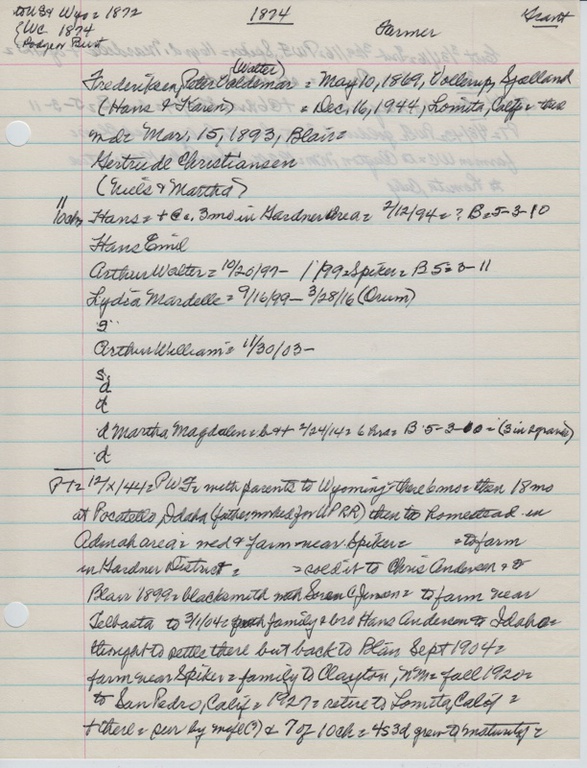 to US & Wyo = 1872
{WC 1874
{Rodger Burt
1874
Farmer
Grant
(Walter)
Frederiksen, Peter Valdemar = May 10, 1869, Vollerup, Sjælland
(Hans & Karen) = Dec, 16, 1944, Lomita, Calif =
mdr Mar, 15, 1893, Blair =
Gertrude Christiansen
(Niels & Martha)
11
10ch Hans = + @ c, 3 mo in Gardner area = 2/12/94 = ? B = 5-3-10
Hans Emil
Arthur Walter = 10/20/97 - 1/ /99 = Spiker = B 5-3-11
Lydia Mardelle = 9/16/99 - 3/28/16 (Orum)
s
Arthur William = 11/30/03 -
s
d
d
d Martha Magdalen = b & + 2/24/14 = 6 hrs = B 5-3-10 = (3 in 1 grave)
d
PT = 12/x/44 = PWF = with parents to Wyoming - there 6 mo = then 18 mo
at Pocatello, Idaho (father worked for UP RR) then to homestead in
Admah area = med & farm near Spiker = to farm
in Gardner District = = sold it to Chris Andersen & to
Blair 1899 = blacksmith with Soren C Jensen = to farm near
Telbasta to 3/1/04 = with family & bro Hans Andersen to Idaho =
thought to settle there but back to Blair Sept 1904 =
farm near Spiker = family to Clayton, NM = fall 1920 =
to San Pedro, Calif = 1927 = retire to Lomita, Calif =
+ there = sur by wife (?) & 7 of 10 ch = 4s 3d grew to maturity =